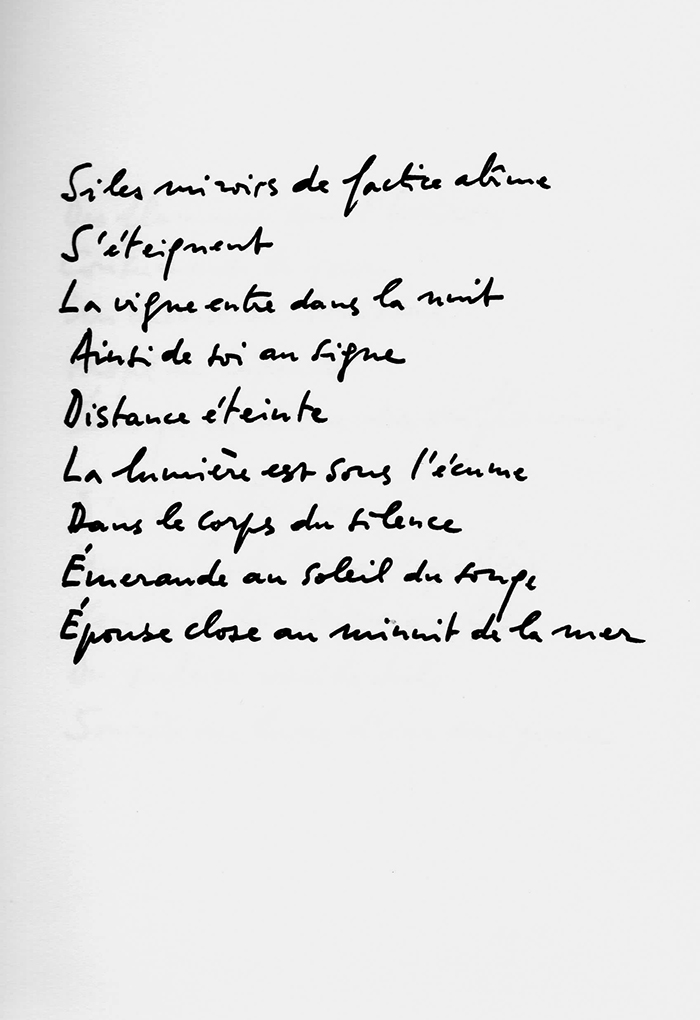 Si les miroirs de factice abîme
S'éteignent
La vigne entre dans la nuit
Ainsi de toi au signe
Distance éteinte
La lumière est sous l'écume
Dans le corps du silence
Émeraude au soleil du songe
Épouse close au minuit de la mer